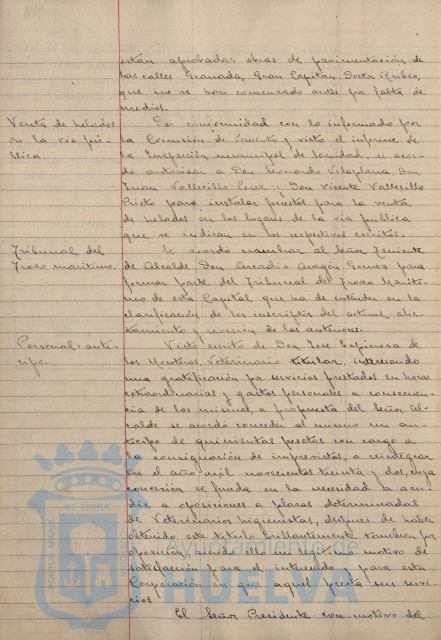 están aprobadas obras de pavimentación de
las calles Granada, Gran Capitán, Doctor Rubio,
que no se han comenzado antes por falta de
medios.
Venta de helados
en la vía pú-
blica.
De conformidad con lo informado por
la Comisión de Fomento y visto el informe de
la Inspección municipal de Sanidad, se acor-
dó autorizar a Don Leonardo Vilaplana, Don
Juan Vallecillo Pérez y Don Vicente Vallecillo
Prieto para instalar puestos para la venta
de helados en los lugares de la vía pública
que se indican en los respectivos escritos.
Tribunal del
Trozo marítimo.
Se acordó nombrar al Señor Teniente
de Alcalde Don Arcadio Aragón Gómez para
formar parte del Tribunal del Trozo Maríti-
mo de esta Capital que ha de entender en la
clasificación de los inscriptos del actual alis-
tamiento y revisión de los anteriores.
Personal: anti-
cipo.
Visto escrito de Don José Espinosa de
los Monteros, Veterinario titular, interesando
una gratificación por servicios prestados en horas
extraordinarias y gastos personales a consecuen-
cia de los mismos, a propuesta del Señor Al-
calde se acordó conceder al mismo un an-
ticipo de quinientas pesetas con cargo a
la consignación de imprevistos, a reintegrar
en el año mil novecientos treinta y dos, cuya
concesión se funda en la necesidad de acu-
dir a oposiciones a plazas determinadas
de Veterinarios higienistas, después de haber
obtenido este título brillantemente también por
oposición, siendo ello un motivo de
satisfacción para el interesado y para esta
Corporación en que aquel presta sus servi-
cios.
El Señor Presidente con motivo del
ET TERRA
Ayuntamiento de
HUELVA